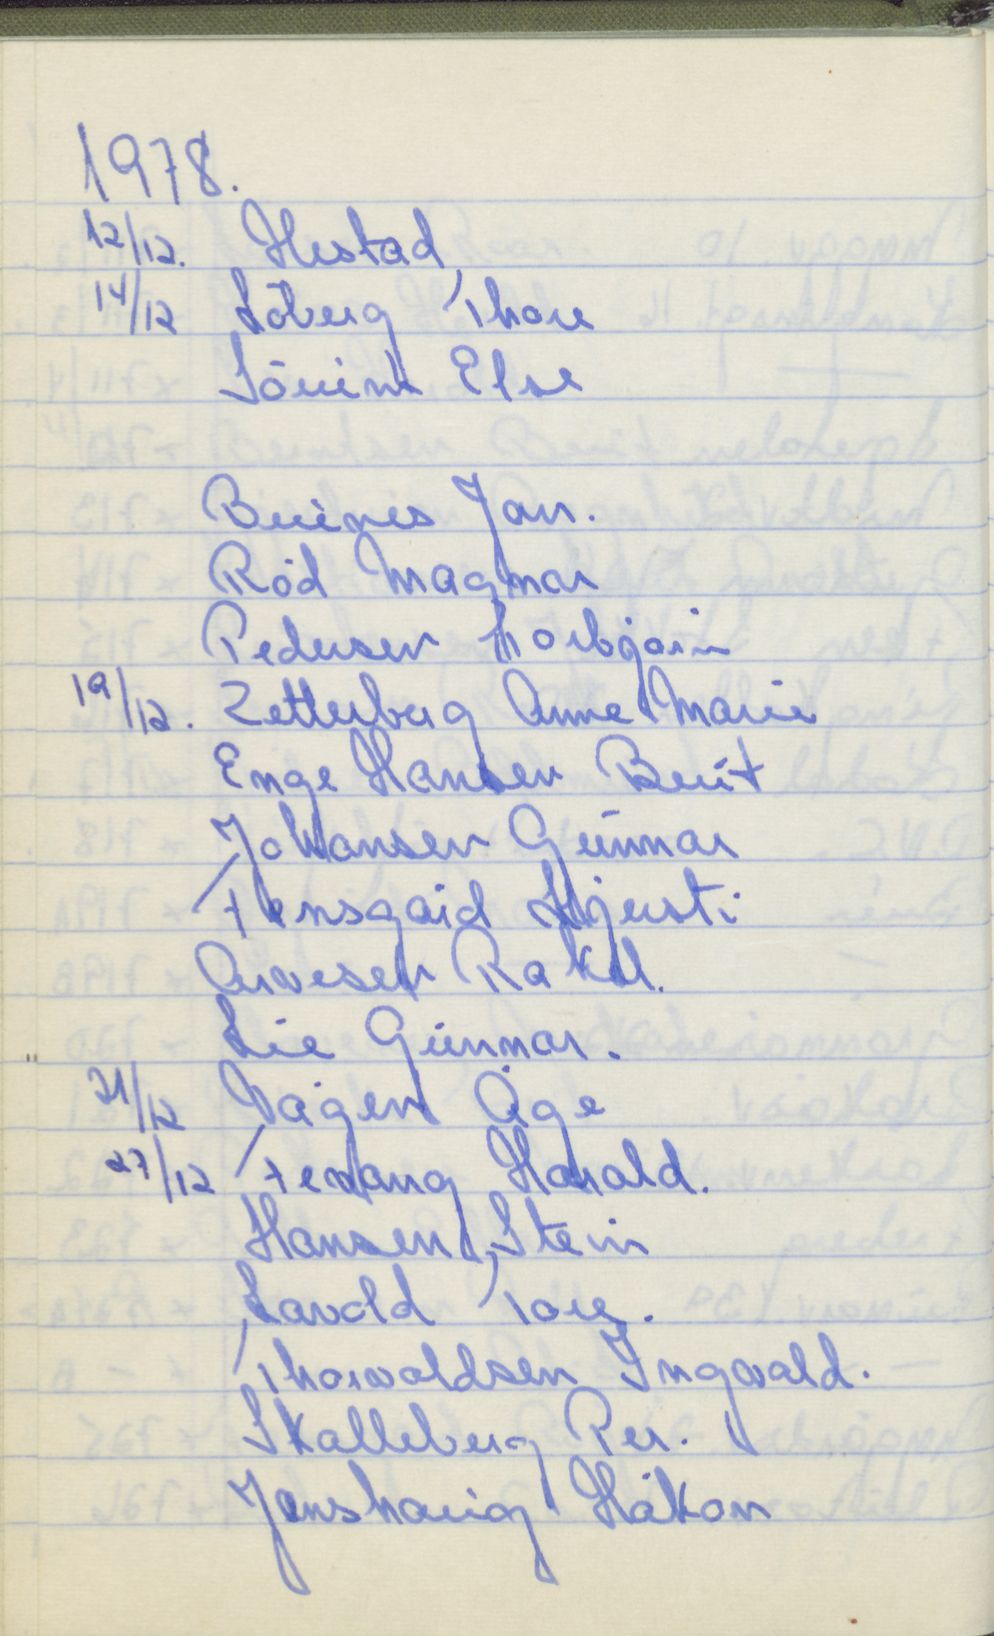 1978.
12/12. Hestad
14/12 Löberg Thore
Sörink Else
Buènes Jan.
Röd Magnar
Pedersen Thorbjörn
19/12. Zetterberg Anne Marie
Enge Hansen Berit
Johansen Gunnar
Fensgård Kjersti
Arvesen Rakel.
Lie Gunnar.
21/12 Vågen Åge
27/12 Fevang Harald.
Hansen Stein
Lavold Tore.
Thorvaldsen Ingvald.
Skalleberg Per.
Jenshaug Håkon